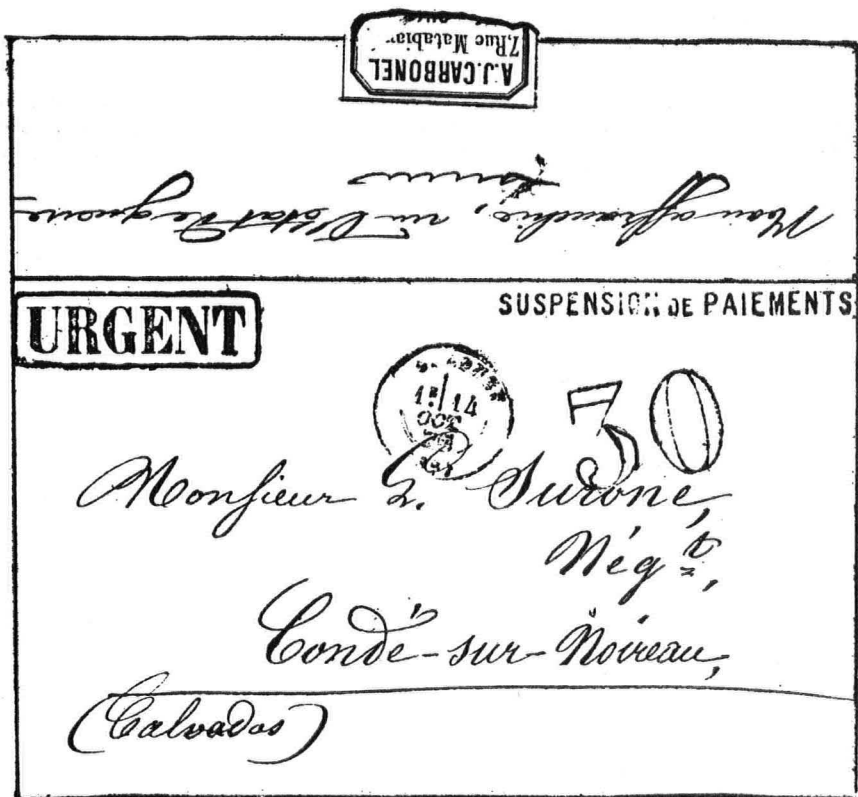 A.J.CARBONEL
7,Rue
Non affranchie, vu l'état
URGENT
SUSPENSION DE PAIEMENTS
1E/ 14
OCT
30
Monsieur L. Surone,
Négt,
Condé-sur-Noireau,
(Calvados)